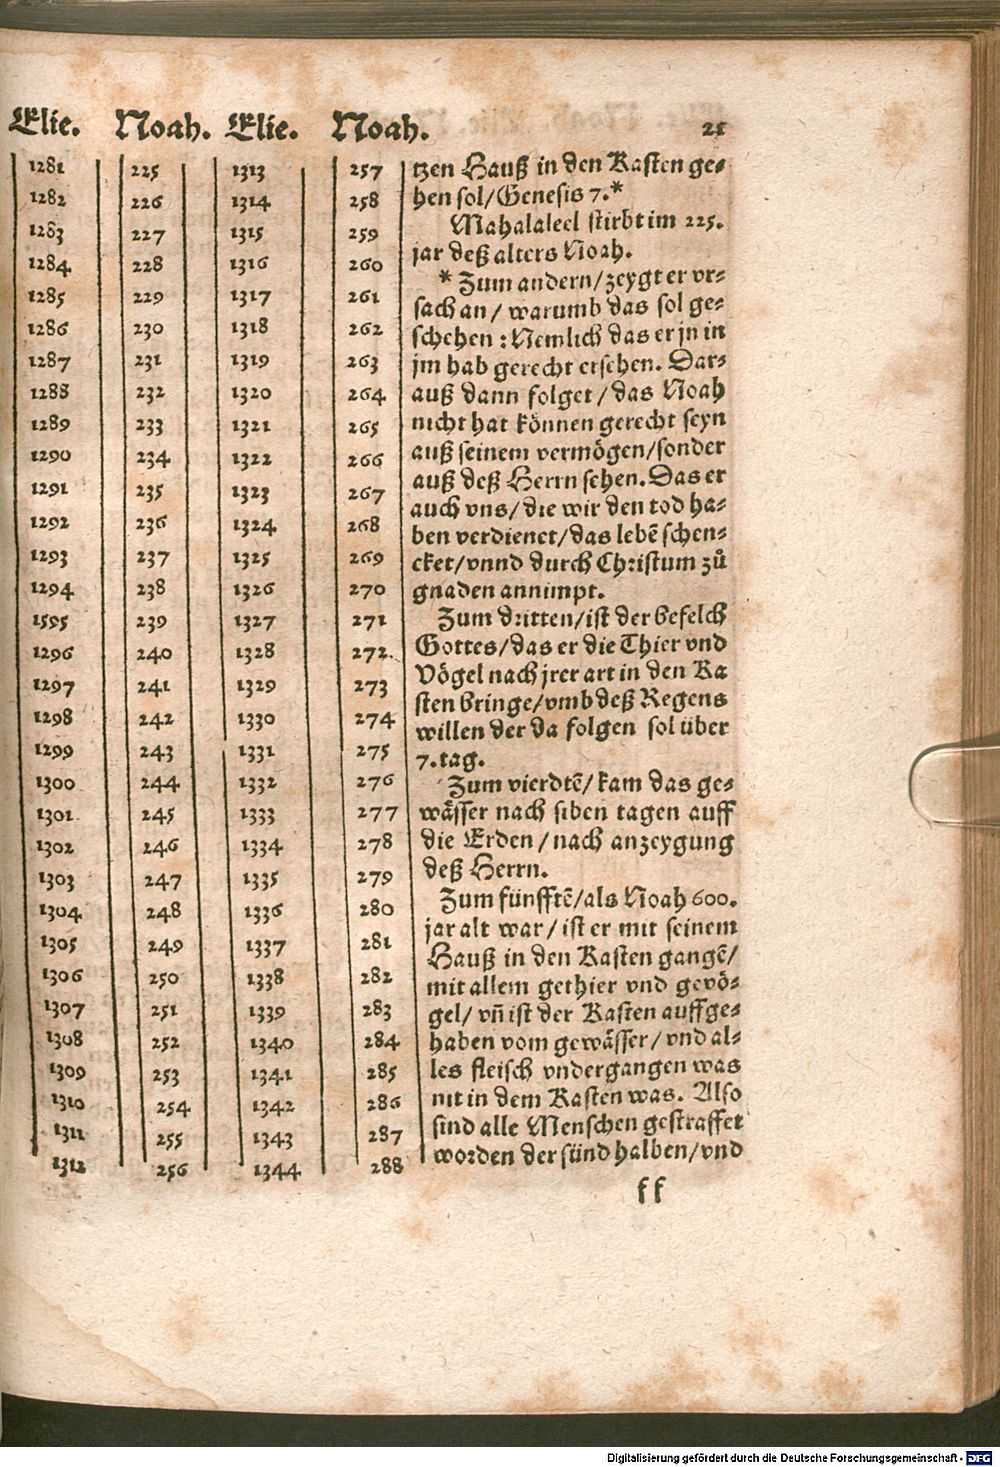 Elie. Noah. Elie. Noah. 21
1281 225 1313 257
1282 226 1314 258
1283 227 1315 259
1284 228 1316 260
1285 229 1317 261
1286 230 1318 262
1287 231 1319 263
1288 232 1320 264
1289 233 1321 265
1290 234 1322 266
1291 235 1323 267
1292 236 1324 268
1293 237 1325 269
1294 238 1326 270
1595 239 1327 271
1296 240 1328 272
1297 241 1329 273
1298 242 1330 274
1299 243 1331 275
1300 244 1332 276
1301 245 1333 277
1302 246 1334 278
1303 247 1335 279
1304 248 1336 280
1305 249 1337 281
1306 250 1338 282
1307 251 1339 283
1308 252 1340 284
1309 253 1341 285
1310 254 1342 286
1311 255 1343 287
1312 256 1344 288
tzen Hauß in den Kasten ge-
hen sol/Genesis 7.*
Mahalaleel stirbt im 225.
jar deß alters Noah.
* Zum andern/zeygt er vr-
sach an/ warumb das sol ge-
schehen: Nemlich das er jn in
jm hab gerecht ersehen. Dar-
auß dann folget/das Noah
nicht hat können gerecht seyn
auß seinem vermögen/sonder
auß deß Herrn sehen. Das er
auch vns/die wir den tod ha-
ben verdienet/das lebē schen-
cket/vnnd durch Christum zů
gnaden annimpt.
Zum dritten/ist der befelch
Gottes/das er die Thier vnd
Vögel nach jrer art in den Ka
sten bringe/vmb deß Regens
willen der da folgen sol über
7. tag.
Zum vierdtē/ kam das ge-
wässer nach siben tagen auff
die Erden/nach anzeygung
deß Herrn.
Zum fünfftē/als Noah 600.
jar alt war/ist er mit seinem
Hauß in den Kasten gangē/
mit allem gethier vnd gevö-
gel/ vn̄ ist der Kasten auffge-
haben vom gewässer/vnd al-
les fleisch vndergangen was
nit in dem Kasten was. Also
sind alle Menschen gestraffet
worden der sünd halben/vnd
ff
Digitalisierung gefördert durch die Deutsche Forschungsgemeinschaft - DFG